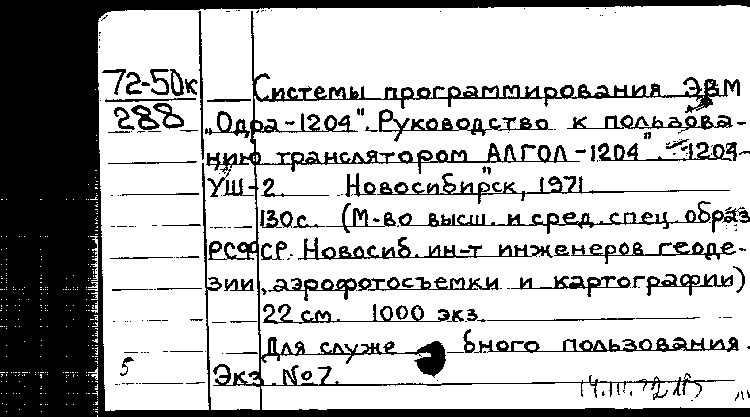 72-50к Системы программирования ЭВМ
288 „Одра-1204". Руководство к пользова-
нию транслятором АЛГОЛ-1204". 1204-
УШ-2. Новосибирск, 1971.
130с. (М-во высш. и сред. спец. образ
РСФСР. Новосиб. ин-т инженеров геоде-
зии, аэрофотосъемки и картографии)
22 см. 1000 экз.
Для служебного пользования.
5 Экз. №7.